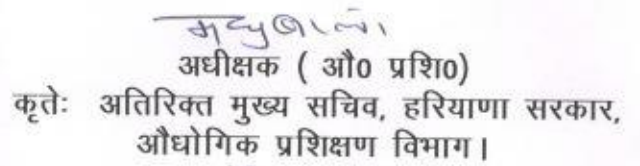 मधुबाला
अधीक्षक ( औ0 प्रशि0)
कृतेः अतिरिक्त मुख्य सचिव, हरियाणा सरकार,
औधोगिक प्रशिक्षण विभाग।